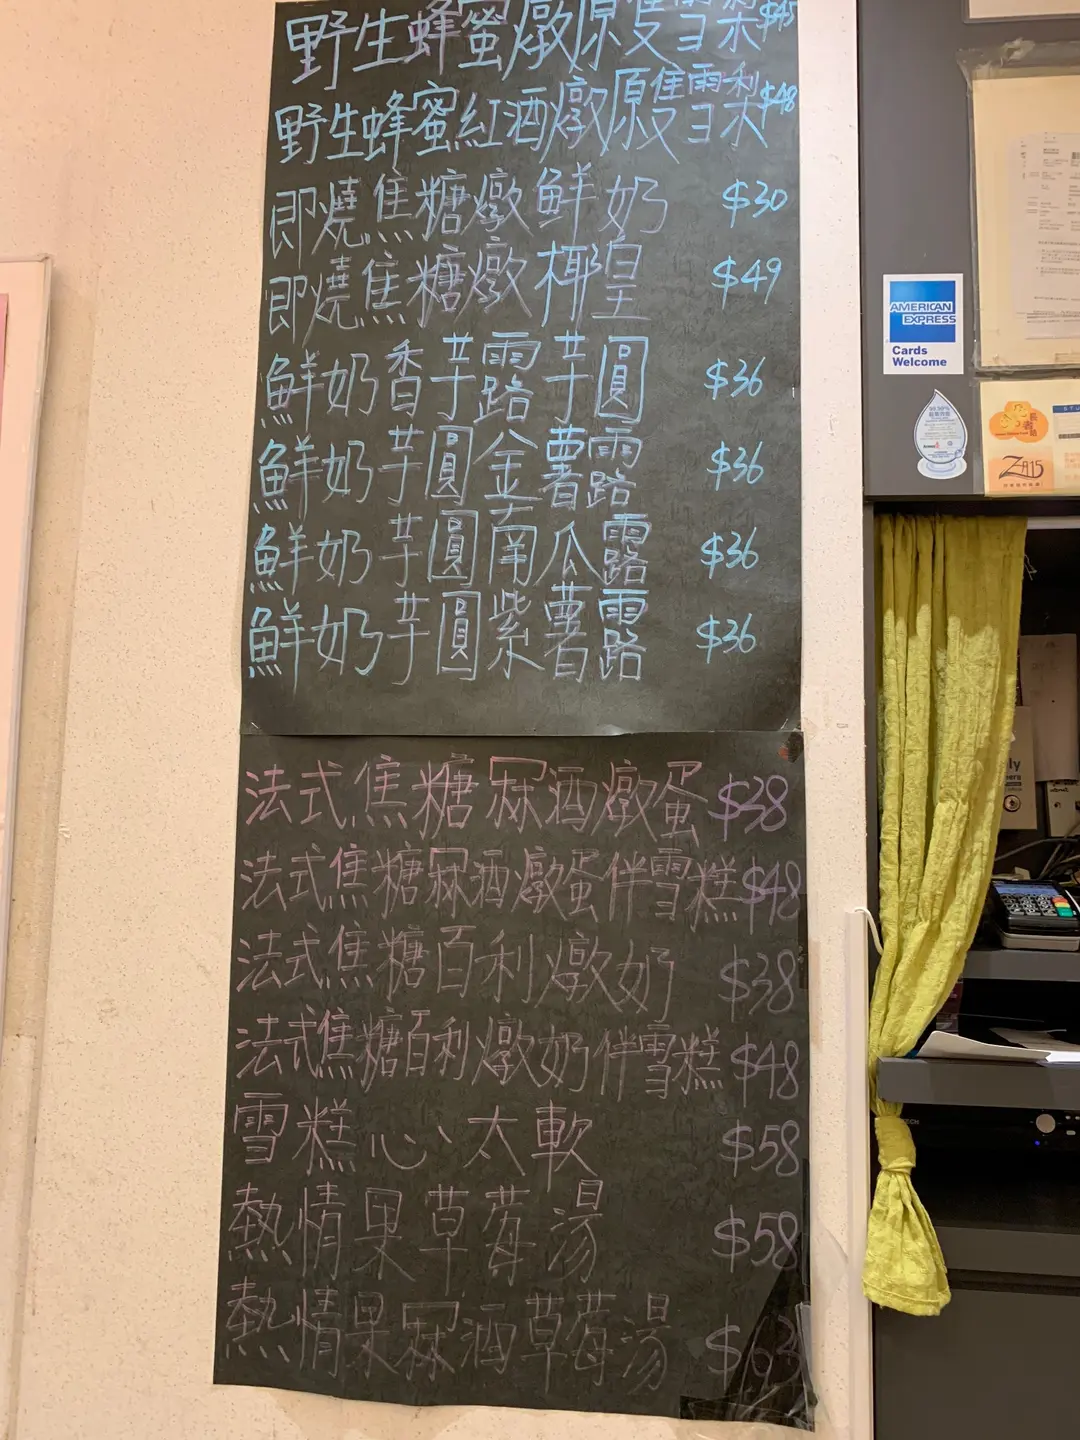 野生蜂蜜燉原隻雪梨 $45
野生蜂蜜紅酒燉原隻雪梨 $48
即燒焦糖燉鮮奶 $30
即燒焦糖燉椰皇 $49
鮮奶香芋露芋圓 $36
鮮奶芋圓金薯露 $36
鮮奶芋圓南瓜露 $36
鮮奶芋圓紫薯露 $36
法式焦糖冧酒燉蛋 $38
法式焦糖冧酒燉蛋伴雪糕 $48
法式焦糖百利燉奶 $38
法式焦糖百利燉奶伴雪糕 $48
雪糕心心太軟 $58
熱情果草莓湯 $58
熱情果冧酒草莓湯 $63
AMERICAN
EXPRESS
Cards
Welcome
ZA15